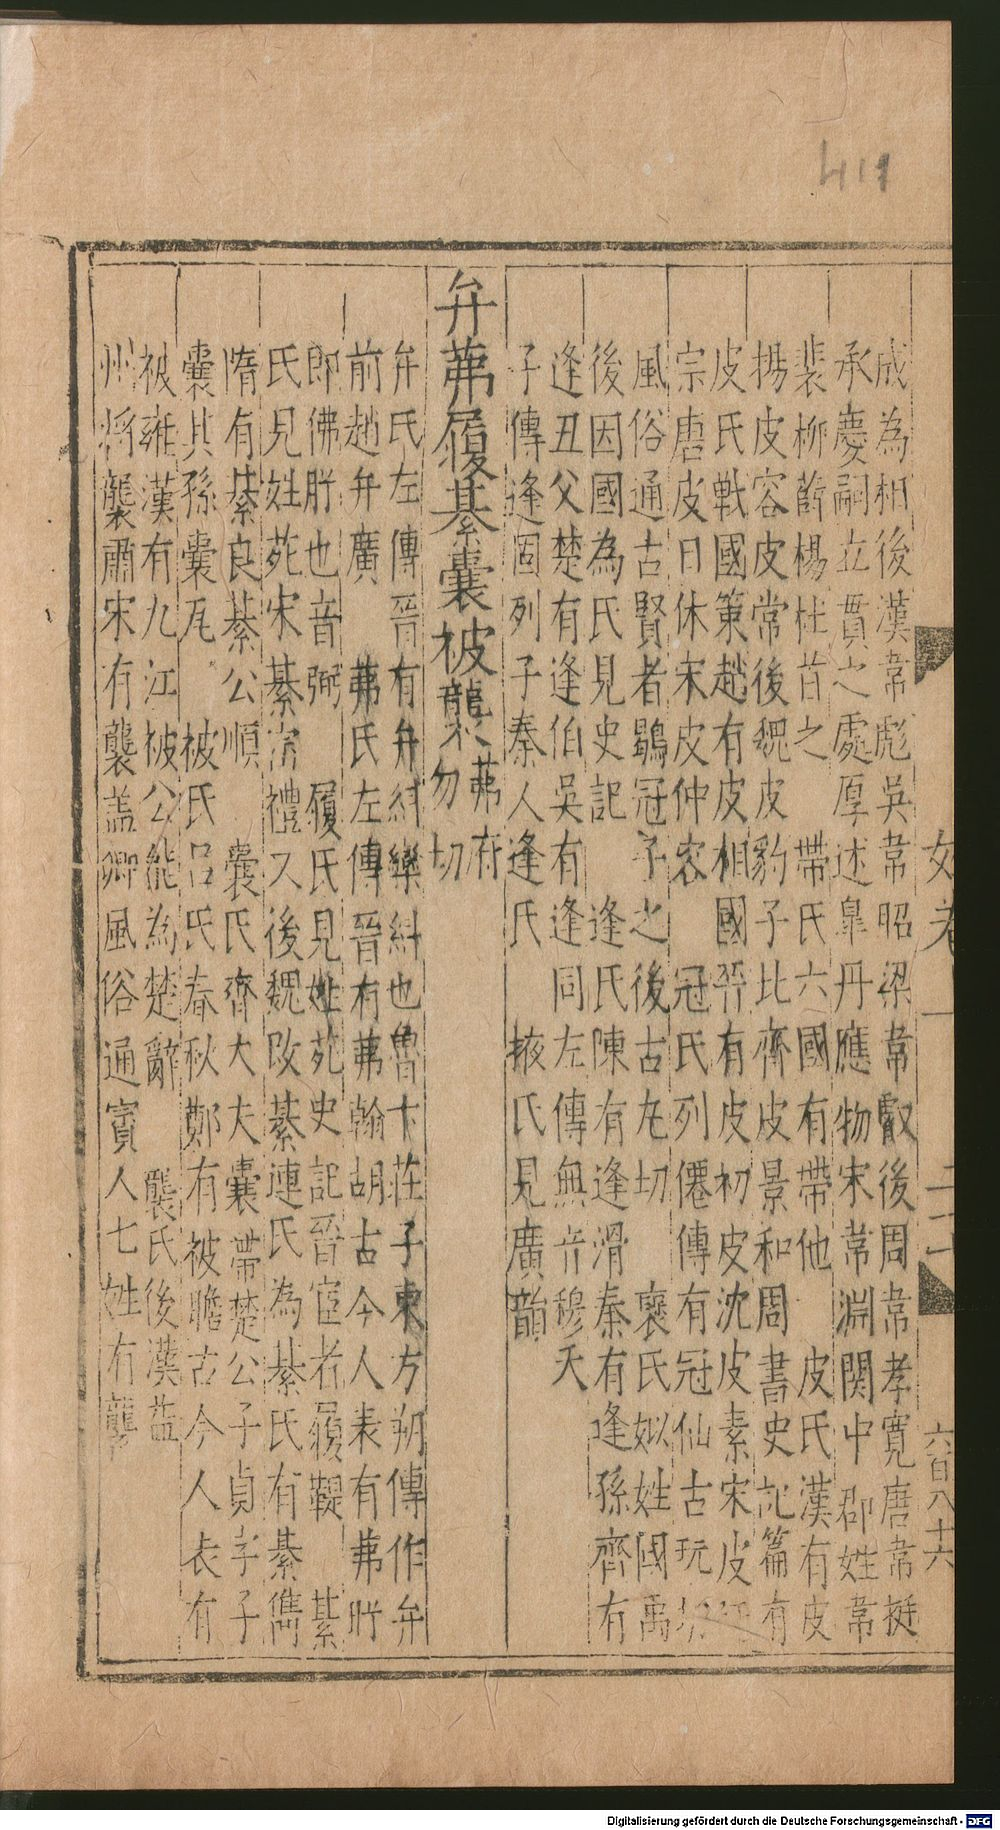 411
成為相後漢韋彪吳韋昭梁韋叡後周韋孝寬唐韋挺
承慶嗣立貫之處厚述臯丹應物宋韋淵関中郡姓韋
裴柳薛楊杜首之 帶氏六國有帶他 皮氏漢有皮
揚皮容皮常後魏皮豹子比齊皮景和周書史記篇有
皮氏戰國策趙有皮相國羿有皮初皮沈皮素宋皮
宗唐皮日休宋皮仲容 冠氏列僊傳有冠仙古玩切
風俗通古賢者鶡冠子之後古丸切 裦氏姒姓國禹
後因國為氏見史記 逢氏陳有逢滑秦有逢孫齊有
逢丑父楚有逢伯吳有逢同左傳無音穆天
子傳逢固列子秦人逢氏 掖氏見廣韻
弁茀履綦囊被襲茀府勿切
弁氏左傳晉有弁糾欒糾也魯卞莊子東方朔傳作弁
前趙弁廣 茀氏左傳晉有茀翰胡古今人表有茀肸
即佛肸也音弼 履氏見姓苑史記晉宦者履鞮 綦
氏見姓苑宋綦崇禮又後魏改綦連氏為綦氏有綦儁
隋有綦良綦公順 囊氏齊大夫囊帶楚公子貞字子
囊其孫囊瓦 被氏呂氏春秋鄭有被瞻古今人表有
被雍漢有九江被公能為楚辭 襲氏後漢益
州將襲肅宋有襲蓋卿風俗通賓人七姓有襲
女卷一
二十
六百八十六
Digitalisierung gefördert durch die Deutsche Forschungsgemeinschaft - DFG